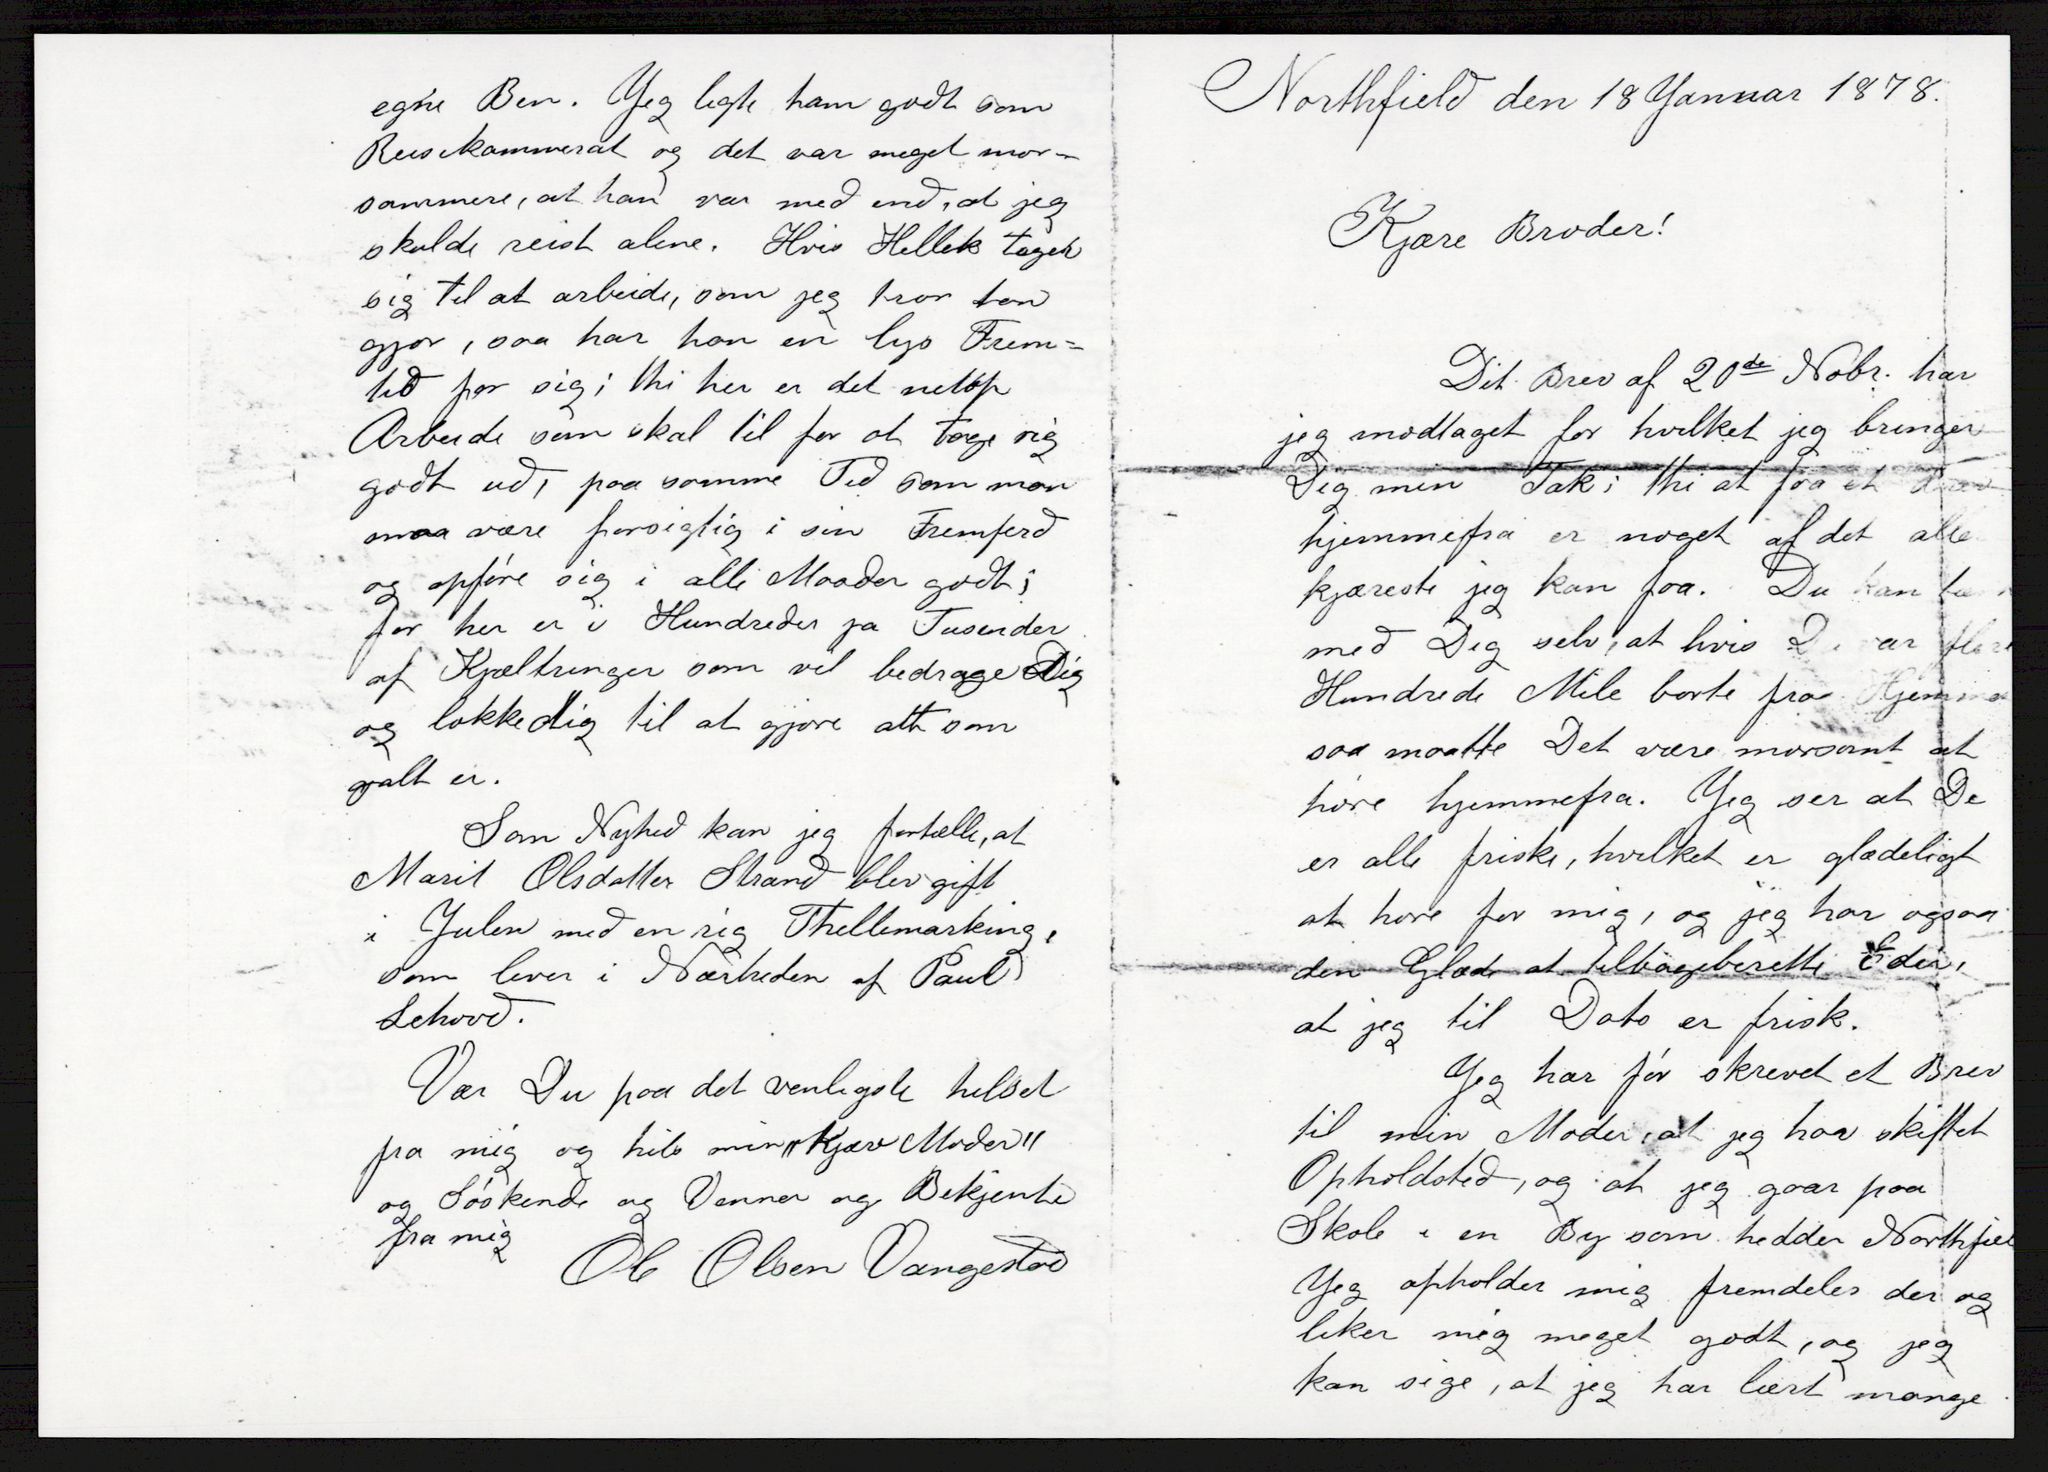 egne Ben. Jeg ligte ham godt som
Reisekammerat og det var meget mor-
sommere, at han var med end, at jeg
skulde reist alene. Hvis Hellek tager
sig til at arbeide, som jeg tror han
gjør, saa har han en lys Frem=
tid for sig; thi her er det netop
Arbeide som skal til for at tage sig
godt ud, paa samme Tid som man
maa være forsigtig i sin Fremferd
og opføre sig i alle Maader godt;
for her er i Hundreder ja Tusender
af Kjæltringer som vil bedrage Dig
og lokke dig til at gjøre alt som
galt er.
Som Nyhed kan jeg fortælle, at
Marit Olsdatter Strand blev gift
i Julen med en rig Thellemarking,
som lever i Nærheden af Paul
Sehovd.
Vær Du paa det venligste hilset
fra mig og hils min "Kjære Moder"
og Søskende og Venner og Bekjente
fra mig
Ole Olsen Vangestad
Northfield den 18 Januar 1878.
Kjære Broder!
Dit Brev af 20de Nobr. har
jeg modtaget for hvilket jeg bringer
Dig min Tak; thi at faa et Brev
hjemmefra er noget af det alle
kjæreste jeg kan faa. Du kan
med Dig selv, at hvis Du var flere
Hundrede Mile borte fra Hjemme
saa maatte Det være morsomt at
høre hjemmefra. Jeg ser at De
er alle friske, hvilket er glædeligt
at høre for mig, og jeg har ogsaa
den Glæde at tilbageberette Eder,
at jeg til Dato er frisk.
Jeg har før skrevet et Brev
til min Moder, at jeg har skiftet
Opholdsted, og at jeg gaar paa
Skole i en By som hedder Northfiel
Jeg opholder mig fremdeles der og
liker mig meget godt, og jeg
kan sige, at jeg har lært mange